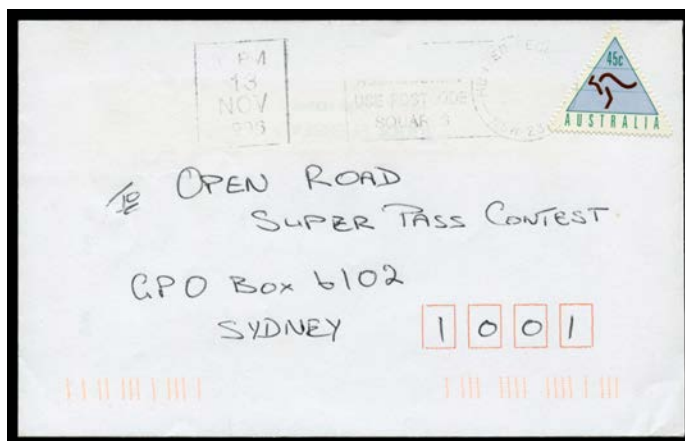 PM
13
NOV
USE POST
SQUAR S
45c
AUSTRALIA
To OPEN ROAD
SUPER PASS CONTEST
GPO Box 6102
SYDNEY 1001